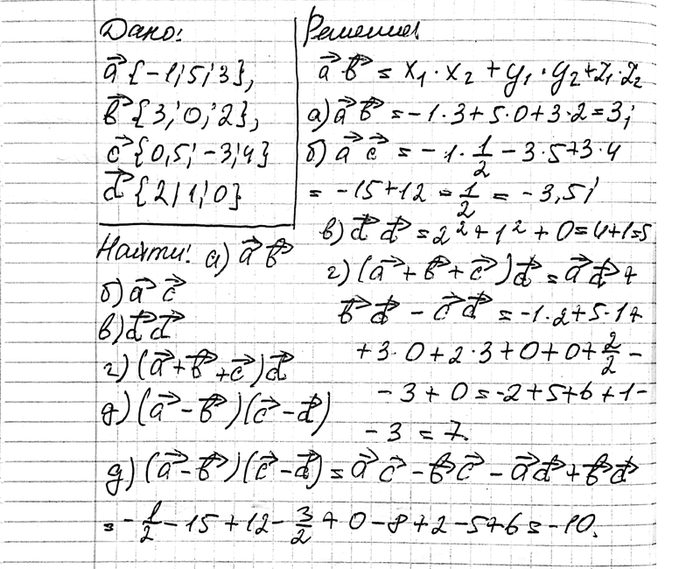 Дано:
a⃗ {-1; 5; 3},
b⃗ {3; 0; 2},
c⃗ {0,5; -3; 4}
d⃗ {2; 1; 0}
Найти: а) a⃗ b⃗
б) a⃗ c⃗
в) d⃗ d⃗
г) (a⃗ + b⃗ + c⃗) d⃗
д) (a⃗ - b⃗)(c⃗ - d⃗)
Решение
a⃗ b⃗ = x₁ · x₂ + y₁ · y₂ + z₁ · z₂
а) a⃗ b⃗ = -1 · 3 + 5 · 0 + 3 · 2 = 3;
б) a⃗ c⃗ = -1 · 1/2 - 3 · 5 + 3 · 4
= -15 + 12 - 1/2 = -3,5;
в) d⃗ d⃗ = 2² + 1² + 0 = 4 + 1 = 5
г) (a⃗ + b⃗ + c⃗) d⃗ = a⃗ d⃗ +
b⃗ d⃗ - c⃗ d⃗ = -1 · 2 + 5 · 1 +
+ 3 · 0 + 2 · 3 + 0 + 0 + 2/2 -
- 3 + 0 = -2 + 5 + 6 + 1 -
- 3 = 7.
д) (a⃗ - b⃗)(c⃗ - d⃗) = a⃗ c⃗ - b⃗ c⃗ - a⃗ d⃗ + b⃗ d⃗
= -1/2 - 15 + 12 - 3/2 + 0 - 8 + 2 - 5 + 6 = -10.